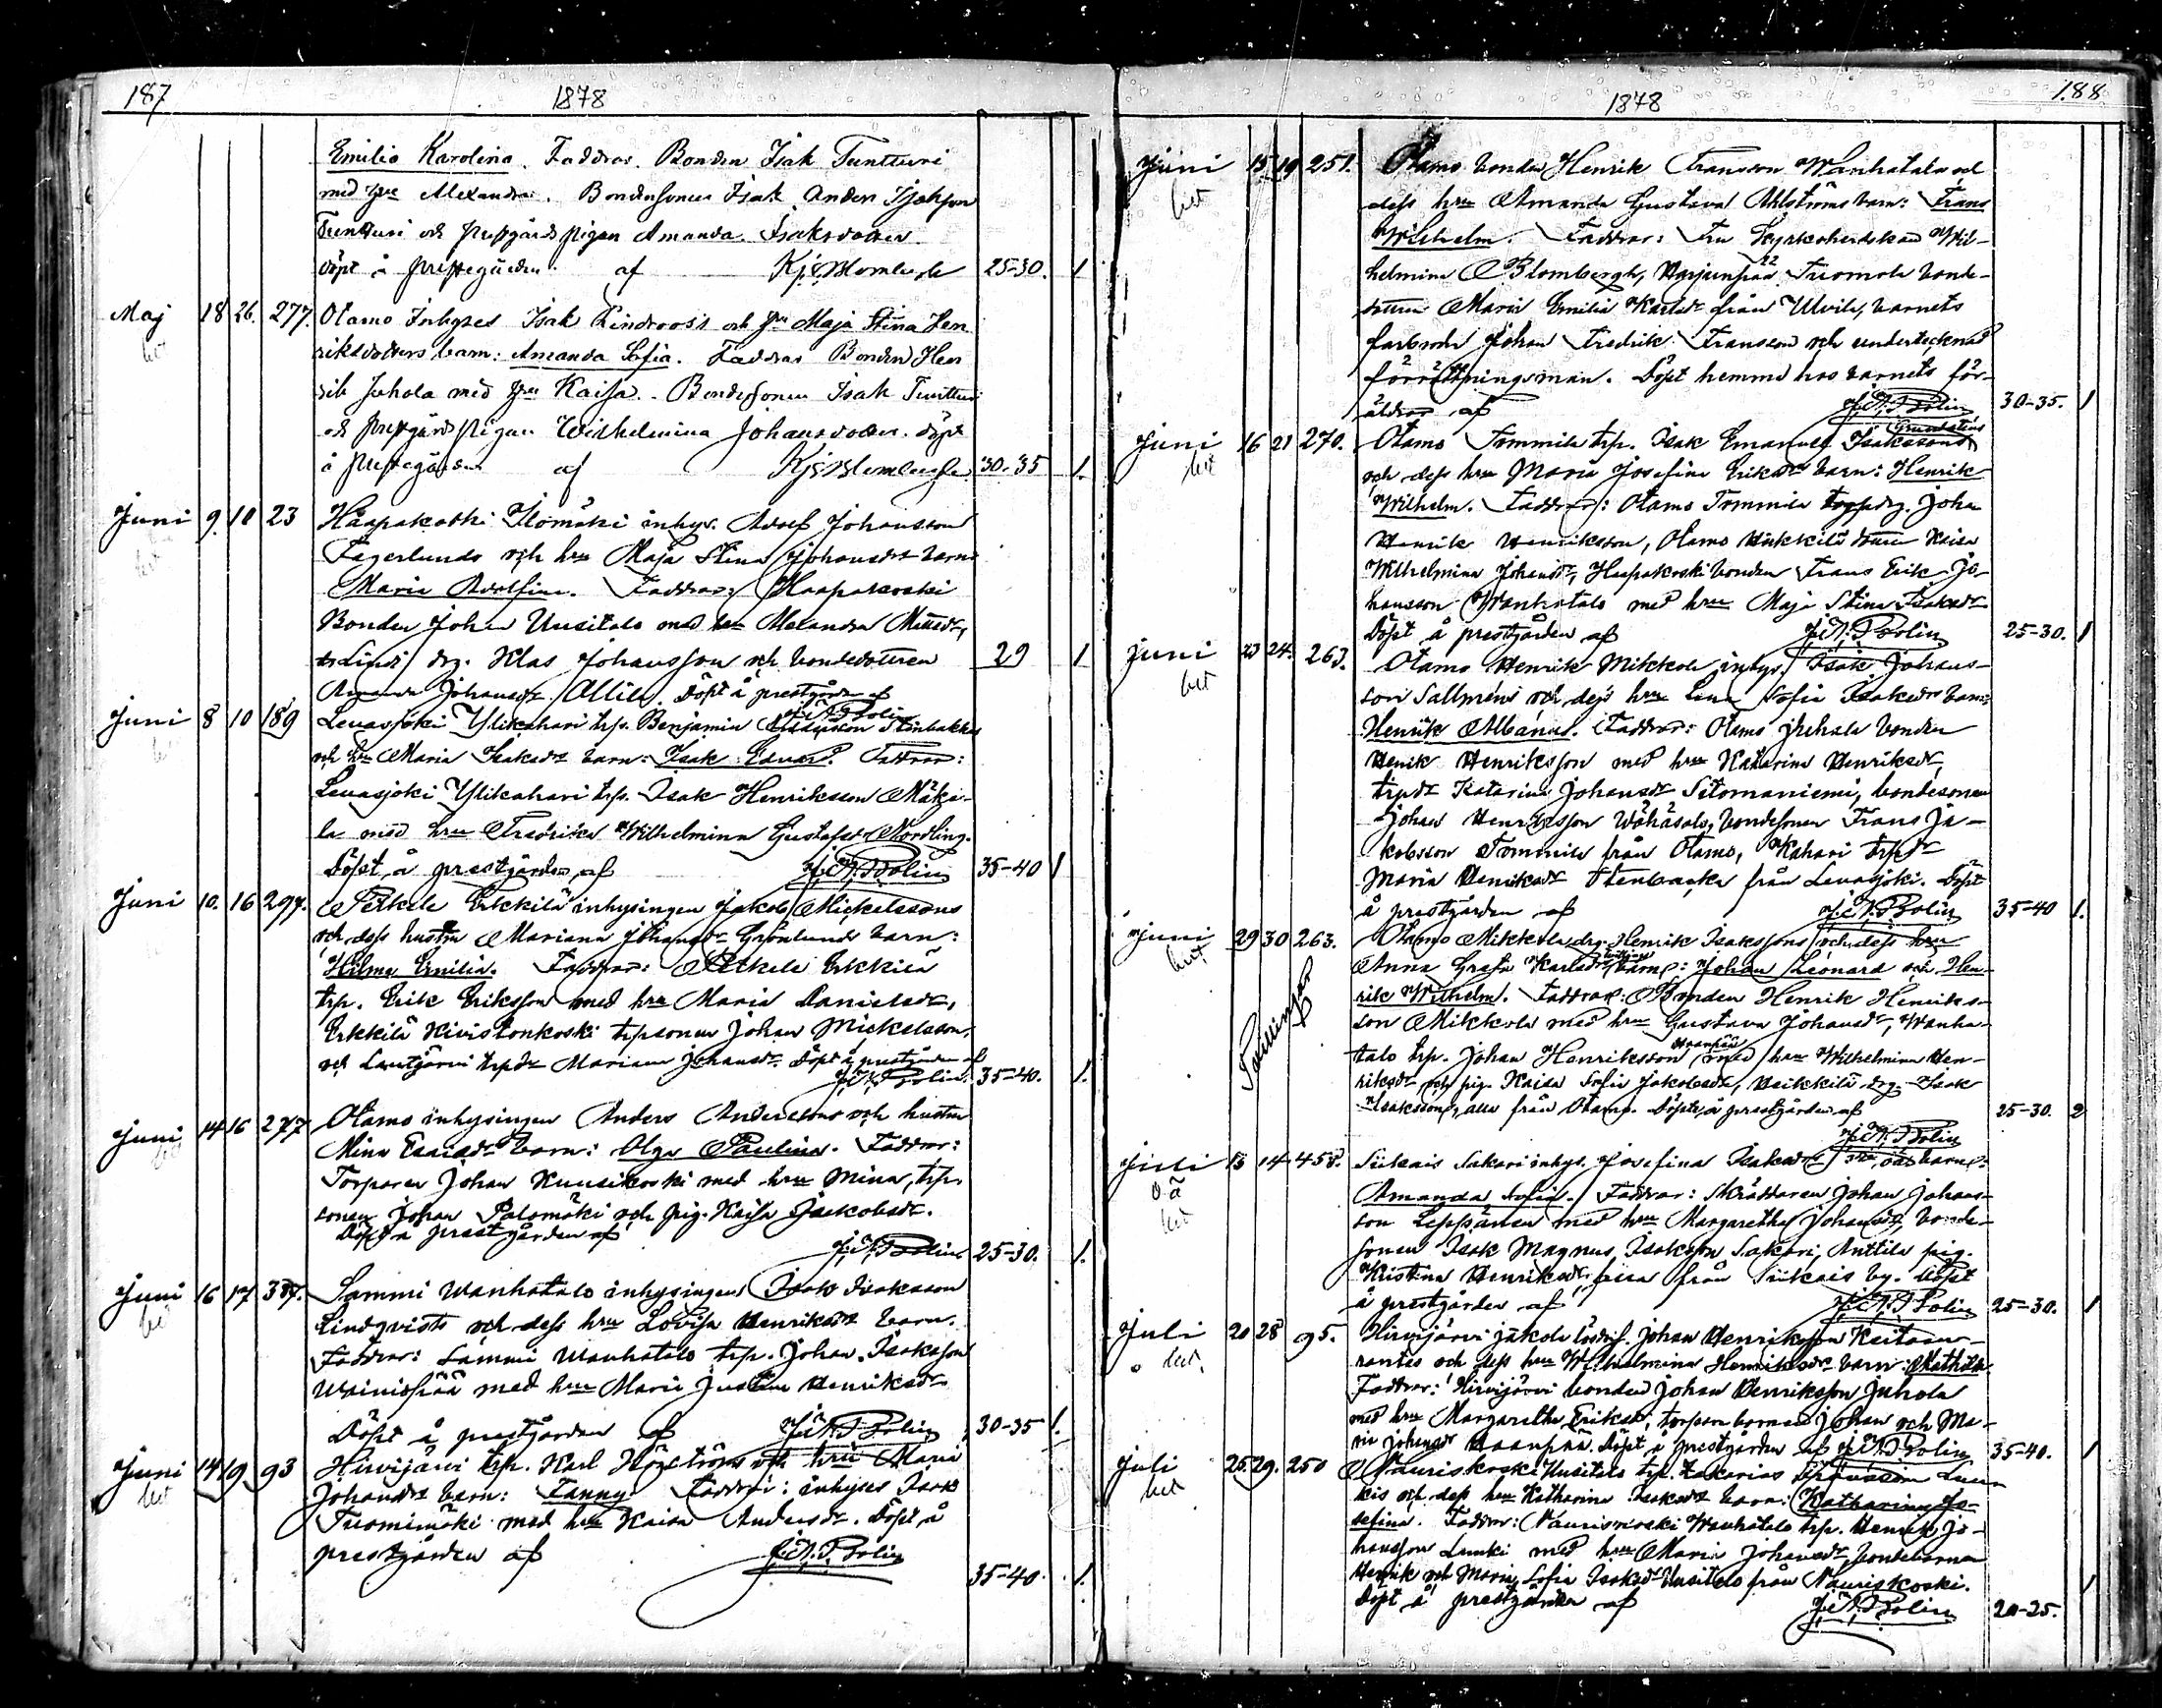 187
1878
Emilia Karolina. Faddrar. Bonden Isak Tuntturi
med hru Alexandra. Bondesonen Isak Anders Isakson
Tuntturi och prestgårds pigan Amanda Isaksdotter.
Döpt å prestegården af 25-30. 1
Maj 18 26. 277. Otamo Inhyses Isak Lindroos's och hru Maja Stina Hen
riksdotters barn: Amanda Sofia. Faddrar Bonden Hen
rik Juhola med hru Kaisa. Bondesonen Isak Tuntturi
och Prestgårds pigan Wilhelmina Johansdotter. döpt
å Prestegården af 30-35 1.
Juni 9. 10 23 Haapakoski Ilomäki inhys. Adolf Johansson
Fagerlunds och hru Maja Stina Johansdr barn:
Maria Adolfina. Faddrar: Haapakoski
Bonden Johan Uusitalo med hru Melandra
drg. Klas Johansson och bondedottren 29 1
Amanda Johansdr Attila. Döpt å prestgården af
J. N. Bolin
Juni 8 10 189 Levasjoki Ylikahari trp. Benjamin Stenbakkas
och hru Maria Isaksdrs barn: Isak Edvard. Faddrar:
Levasjoki Ylikahari trp. Isak Henriksson Mäkä-
la med hru Fredrika Wilhelmina Gustafsdr Nordling.
Döpt å prestgården af J. N. Bolin 35-40 1
Juni 10. 16 297. Petkele Erkkilä inhysingen Jakob Mickelssons
och dess hustru Mariana Johansdr Grönlunds barn:
Hilma Emilia. Faddrar: Petkele Erkkilä
trp. Erik Eriksson med hru Maria Danielsdr,
Erkkilä Kivistonkoski trpsonen Johan Mickelsson,
och Lautjärvi trpdr Mariana Johansdr. Döpt å prestgården af
J. N. Bolin. 35-40. 1.
Juni 14 16 277 Otamo inhysingen Anders Anderssons och hustru
Mina Esaiasdr barn: Olga Paulina. Faddrar:
Torparen Johan Kuusikoski med hru Mina, trp.
sonen Johan Palomäki och pig. Kaisa Jakobsdr.
Döpt å prestgården af
J. N. Bolin 25-30. 1.
Juni 16 17 387. Sammi Wanhatalo inhysingen Isak Isaksson
Lindqvists och dess hru Lovisa Henriksdrs barn.
Faddrar: Sammi Wanhatalo trp. Johan Isaksson
Wainiopää med hru Maria Justina Henriksdr
Döpt å prestgården af J. N. Bolin 30-35 1.
Juni 14 19 93 Hirvijärvi trp. Karl Högströms och hru Maria
Johansdrs barn: Fanny. Faddrar: inhyses Isak
Tuomimäki med hru Kaisa Andersdr. Döpt å
prestgården af J. N. Bolin
35-40. 1.
188
1878
Juni 15 19 251. Otamo bonden Henrik Fransson Wanhatalo och
dess hru Amanda Gustava Ahlströms barn: Frans
Wilhelm. Faddrar: Fru Kyrkoherdskan Wil-
helmina Blombergh, Harjunpää Tuomola bonde-
dottren Maria Emilia Karlsdr från Ulvila, barnets
farbroder Johan Fredrik Fransson och undertecknad
förrättningsman. Döpt hemma hos barnets för-
äldrar af J. N. Bolin 30-35. 1
Juni 16 21 270. Otamo Tommila trp. Isak Emanuel Isakssons
och dess hru Maria Josefina Eriksdr barn: Henrik
Wilhelm. Faddrar: Otamo Tommila torpdrg. Johan
Henrik Henriksson, Otamo Heikkilä dottren Kaisa
Wilhelmina Johansdr, Haapakoski bonden Frans Erik Jo-
hansson Wanhatalo med hru Maja Stina Isaksdr.
Döpt å prestgården af J. N. Bolin 25-30. 1
Juni 23 24. 263. Otamo Henrik Mikkola inhys. Isak Johans-
son Sallméns och dess hru Lena Sofia Isaksdrs barn:
Henrik Albanus. Faddrar: Otamo Juhola bonden
Henrik Henriksson med hru Katarina Henriksdr,
trpdr Katarina Johansdr Sitomaniemi, bondesonen
Johan Henriksson Wähäsalo, bondesonen Frans Ja-
kobsson Tommila från Otamo, Kahari trpdr
Maria Henriksdr Stenbacka från Levasjoki. Döpt
å prestgården af J. N. Bolin 35-40 1.
Juni 29 30 263. Otamo Mikkola drg. Henrik Isakssons och dess hru
Anna Greta Karlsdrs barn: Johan Leonard och Hen-
rik Wilhelm. Faddrar: Bonden Henrik Henriks-
son Mikkola med hru Gustava Johansdr, Wanha-
talo trp. Johan Henriksson Haanpää med hru Wilhelmina Hen-
riksdr och pig. Kaisa Sofia Jakobsdr, Heikkilä drg. Isak
Isaksson, alla från Otamo. Döpte å prestgården af 25-30. 2
J. N. Bolin
Juli 13 14 458. Siikais Sakari inhys. Josefina Isaksdrs oä barn:
oä
Amanda Sofia. Faddrar: Skräddaren Johan Johans-
son Leppänen med hru Margaretha Johansdr, bonde-
sonen Isak Magnus Isaksson Sakari, Anttila pig.
Kristina Henriksdr, från Siikais by. Döpt
å prestgården af J. N. Bolin 25-30. 1
Juli 20 28 95. Hirvijärvi Jakola lösdrif. Johan Henriksson Keitaan-
rantas och dess hru Wilhelmina Henriksdrs barn: Mathilda.
Faddrar: Hirvijärvi bonden Johan Henriksson Juhola
med hru Margaretha Eriksdr, torparebarnen Johan och Ma-
ria Johansdr Haanpää. Döpt å prestgården af J. N. Bolin 35-40. 1
Juli 25. 29. 250 Nauriskoski Uusitalo trp. Zakarias Lun-
kis och dess hru Katharina Isaksdrs barn: Katharina Jo-
sefina. Faddrar: Nauriskoski Wanhatalo trp. Henrik Jo-
hansson Lunki med hru Maria Johansdr, bondebarnen
Henrik och Maria Sofia Isaksdr Uusitalo från Nauriskoski. 1
Döpt å prestgården af J. N. Bolin 20-25.